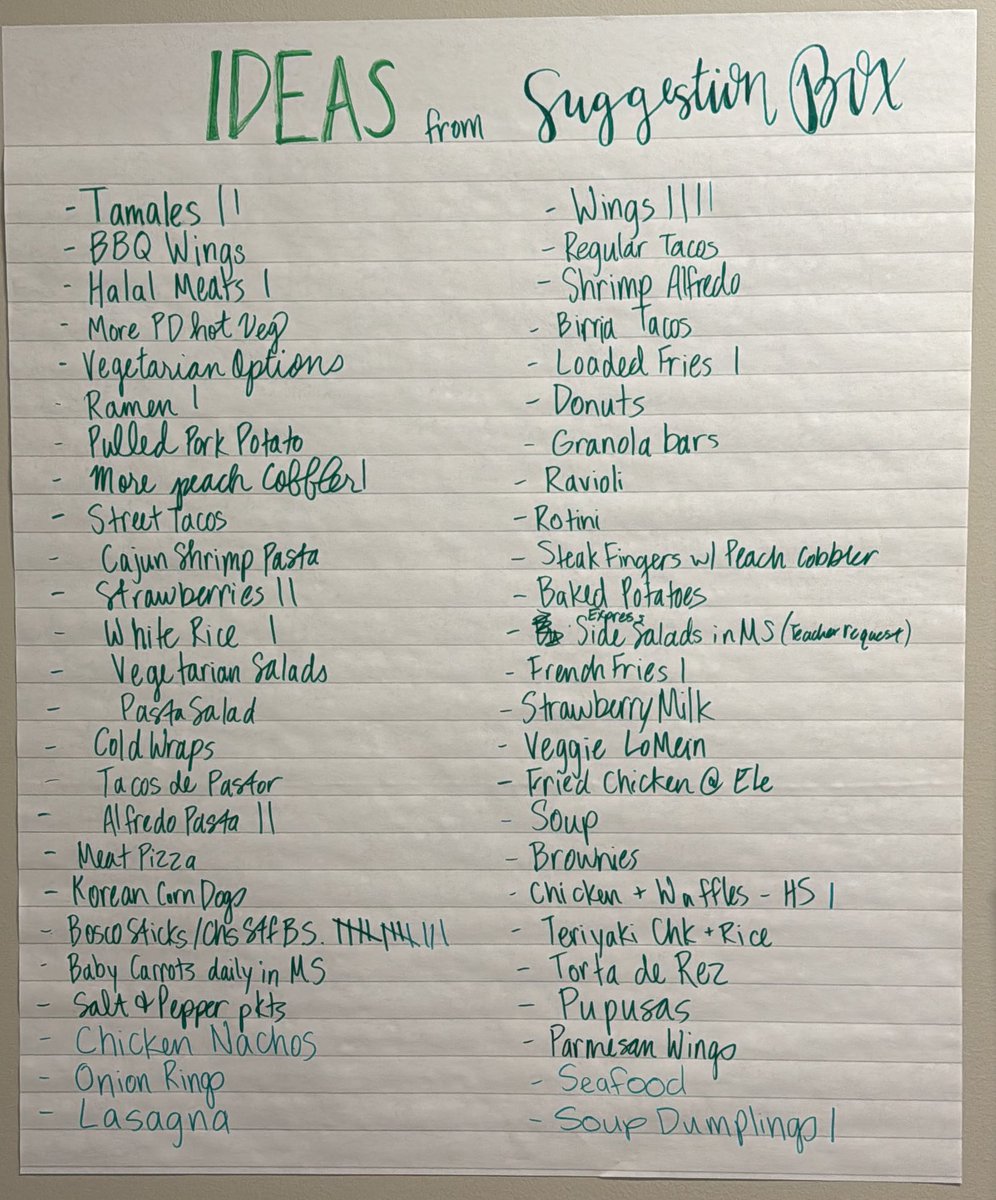 IDEAS from Suggestion Box
- Tamales ||
- BBQ Wings
- Halal Meats |
- More PD hot Veg
- Vegetarian Options
- Ramen |
- Pulled Pork Potato
- More peach Cobbler |
- Street Tacos
- Cajun Shrimp Pasta
- Strawberries ||
- White Rice |
- Vegetarian Salads
- Pasta Salad
- Cold Wraps
- Tacos de Pastor
- Alfredo Pasta ||
- Meat Pizza
- Korean Corn Dogs
- Bosco Sticks / Chs Stf B.S. |||| |||| |||
- Baby Carrots daily in MS
- Salt & Pepper pkts
- Chicken Nachos
- Onion Rings
- Lasagna
- Wings ||||
- Regular Tacos
- Shrimp Alfredo
- Birria Tacos
- Loaded Fries |
- Donuts
- Granola bars
- Ravioli
- Rotini
- Steak Fingers w/ Peach Cobbler
- Baked Potatoes
- Express Side Salads in MS (Teacher request)
- French Fries |
- Strawberry Milk
- Veggie LoMein
- Fried Chicken @ Ele
- Soup
- Brownies
- Chicken + Waffles - HS |
- Teriyaki Chk + Rice
- Torta de Rez
- Pupusas
- Parmesan Wings
- Seafood
- Soup Dumplings |